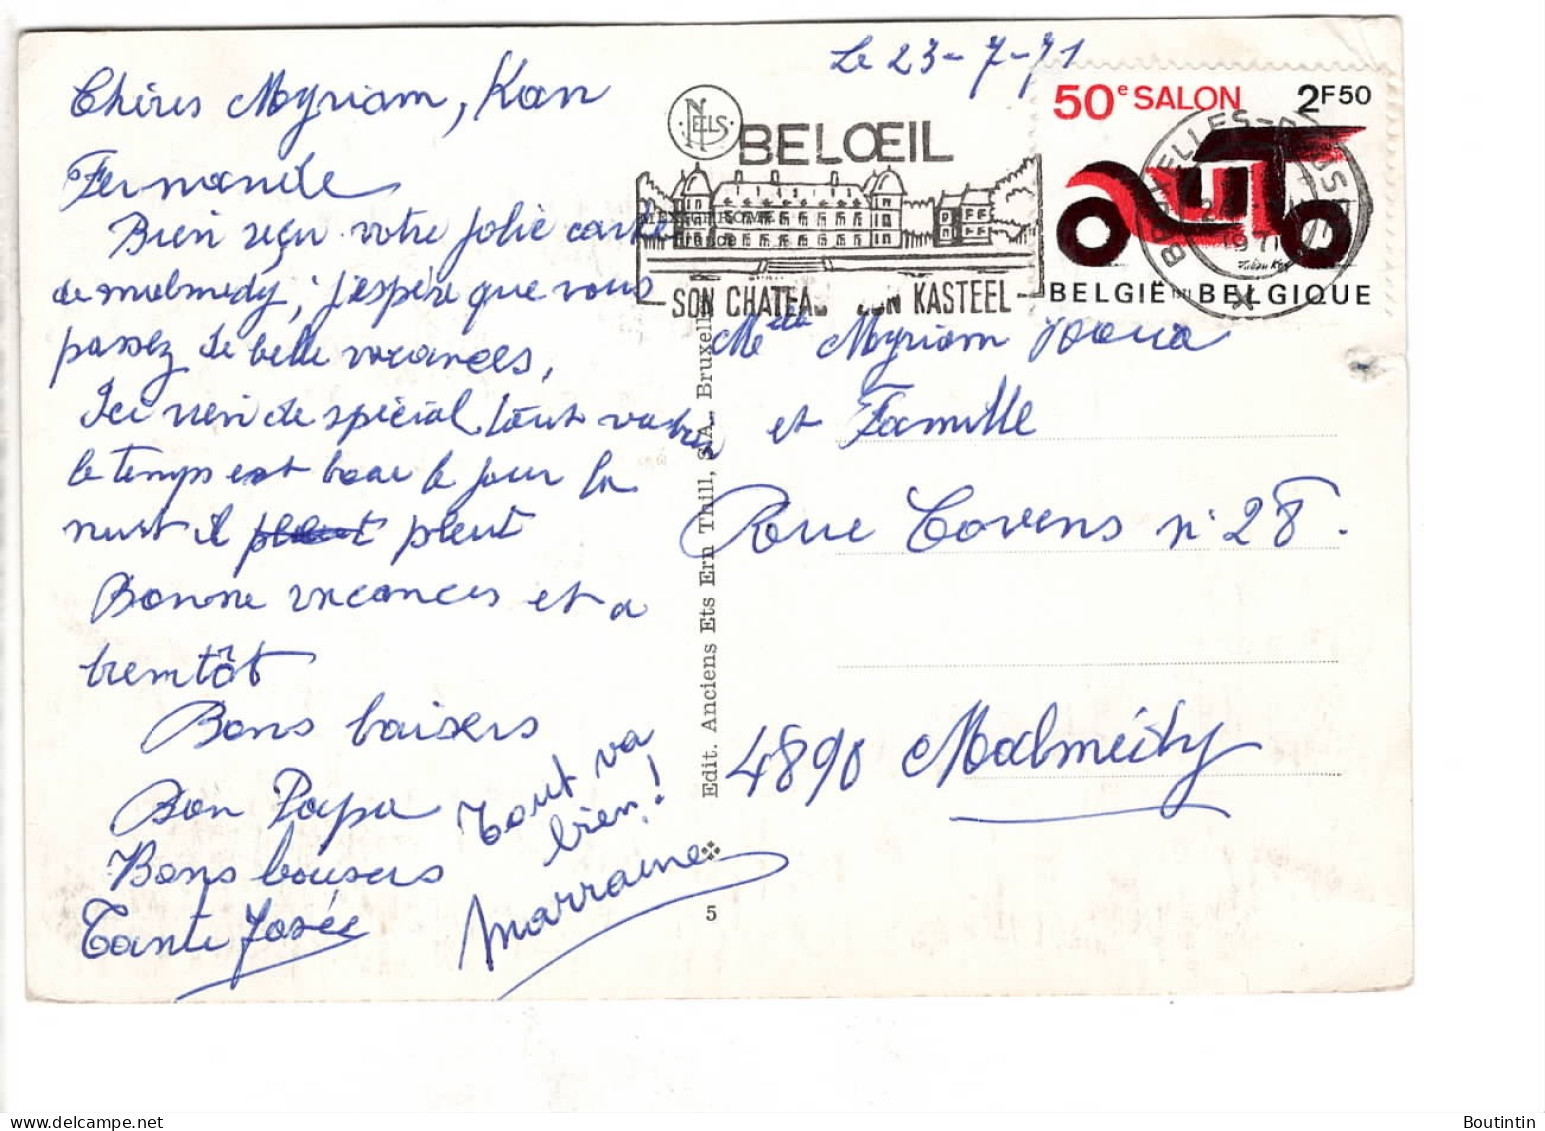 Le 23-7-71
Chères Myriam, Kan
Fernande
Bien reçu votre jolie carte
de malmedy, j'espère que vous
passez de belle vacances,
Ici rien de spécial, tout va très
le temps est beau le jour la
nuit il pleut pleut
Bonne vacances et a
bientôt
Bons baisers
Bon Papa
Bons baisers
Tante Josée
Tout va
bien!
Marraine
NELS
BELŒIL
SON CHATEAU ZIJN KASTEEL
50e SALON 2F50
AUTO
BELGIË 1971 BELGIQUE
BRUXELLES-BRUSSEL
1971
Melle Myriam
et Famille
Rue Cavens n° 28.
4890 Malmédy
Edit. Anciens Ets Ern Thill, S.A., Bruxelles
5
delcampe.net
Boutintin